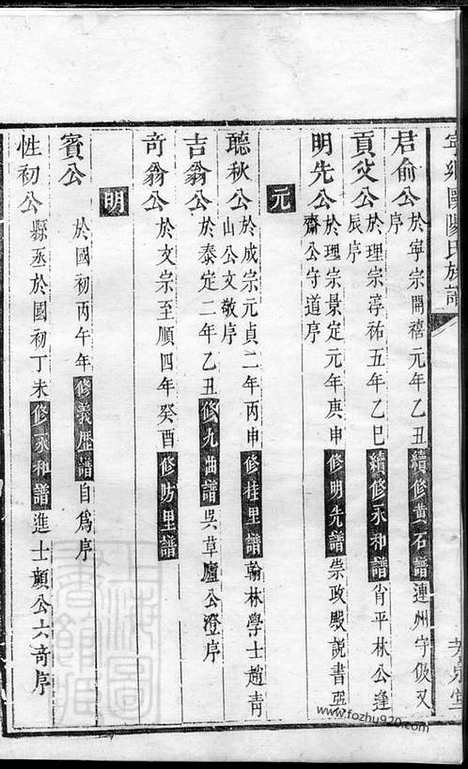 寧鄉歐陽氏族譜
君俞公 於寧宗開禧元年乙丑續修黃石譜連州守
序
貢父公 於理宗淳祐五年乙巳續修永和譜肖平林公逢
辰序
明先公 於理宗景定元年庚申修明先譜崇政殿説書
齋公守道序
元
聽秋公 於成宗元貞二年丙申修桂里譜翰林學士趙青
山公文敬序
吉翁公 於泰定二年乙丑修九曲譜吳草廬公澄序
奇翁公 於文宗至順四年癸酉修防里譜
明
賓公 於國初丙午年修義歷譜自爲序
性初公 縣丞於國初丁未修永和譜進士顏公六奇序
www.fozhu920.com